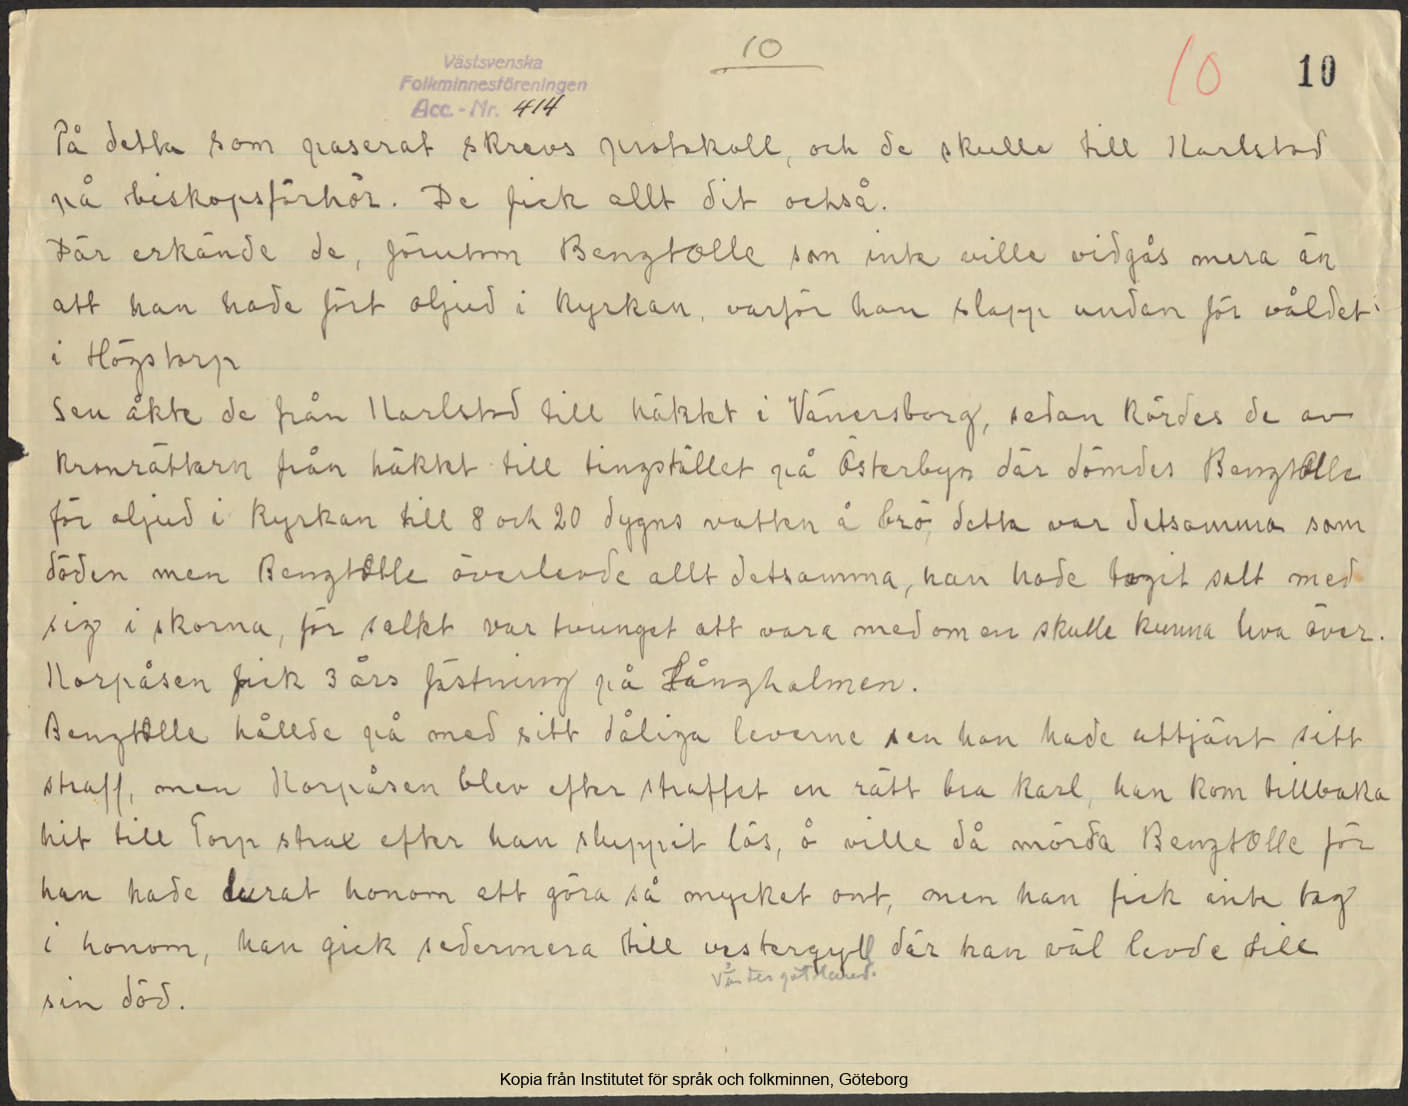 10
10
10
Västsvenska
Folkminnesföreningen
Acc.-Nr. 414
På detta som paserat skrevs protokoll, och de skulle till Karlstad
på biskopsförhör. De fick allt dit också.
Där erkände de, förutom BengtOlle som inte ville vidgås mera än
att han hade fört oljud i kyrkan, varför han slapp undan för våldet
i Högstorp
Sen åkte de från Karlstad till häktet i Vänersborg, sedan kördes de av
kronrättarn från häktet till tingstället på Österbyn där dömdes BengtOlle
för oljud i kyrkan till 8 och 20 dygns vatten å brö, detta var detsamma som
döden men BengtOlle överlevde allt detsamma, han hade tagit salt med
sig i skorna, för salkt var tvunget att vara med om en skulle kunna leva över.
Korpåsen fick 3 års fästning på Långholmen.
BengtOlle hållde på med sitt dåliga leverne sen han hade attjänt sitt
straff, men Korpåsen blev efter straffet en rätt bra karl, han kom tillbaka
hit till Torp strax efter han sluppit lös, å ville då mörda BengtOlle för
han hade lurat honom att göra så mycket ont, men han fick inte tag
i honom, han gick sedermera till vestergyll där han väl levde till
Västergötland.
sin död.
Kopia från Institutet för språk och folkminnen, Göteborg